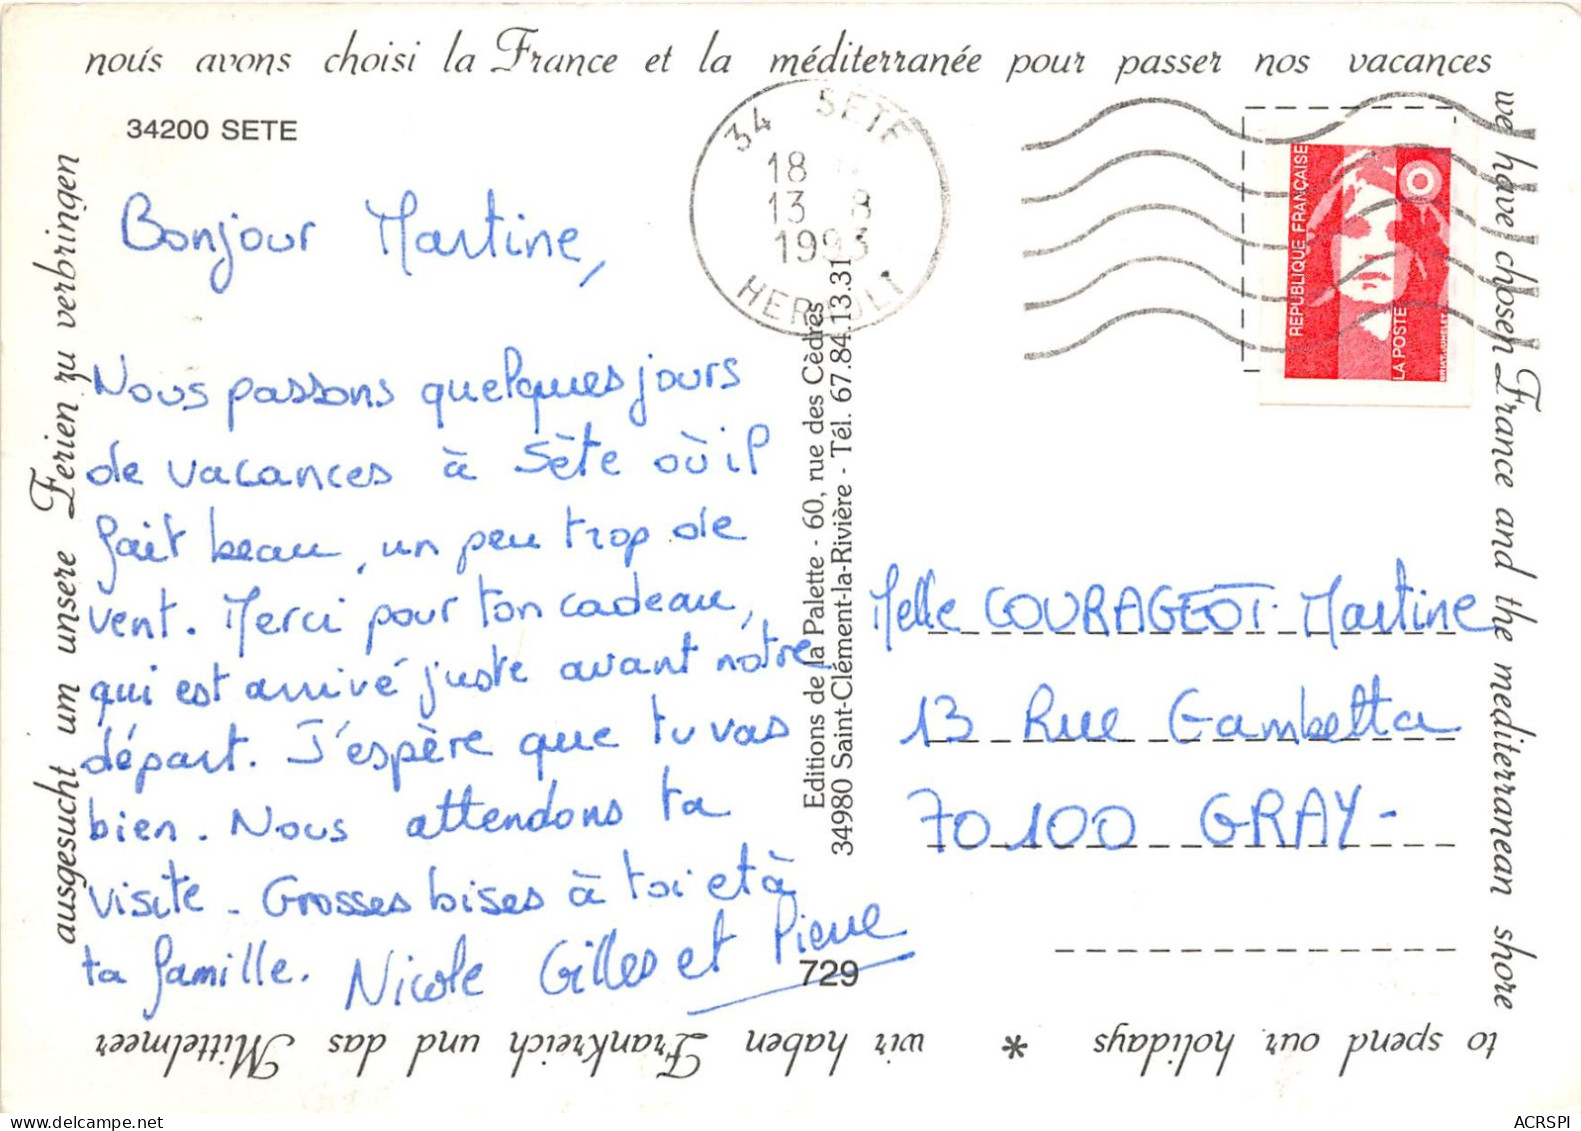 nous avons choisi la France et la méditerranée pour passer nos vacances
we have chosen France and the mediterranean shore
to spend our holidays * wir haben Frankreich und das Mittelmeer
ausgesucht um unsere Ferien zu verbringen
34200 SETE
34 SETE
18
13 8
1993
HERAULT
REPUBLIQUE FRANÇAISE
LA POSTE
Bonjour Martine,
Nous passons quelques jours
de vacances à Sète où il
fait beau, un peu trop de
vent. Merci pour ton cadeau,
qui est arrivé juste avant notre
départ. J'espère que tu vas
bien. Nous attendons ta
visite. Grosses bises à toi et à
ta famille. Nicole Gilles et Pierre
Editions de la Palette - 60, rue des Cèdres
34980 Saint-Clément-la-Rivière - Tél. 67.84.13.31
729
Melle COURAGEOT Martine
13 Rue Gambetta
70100 GRAY -
ACRSPI